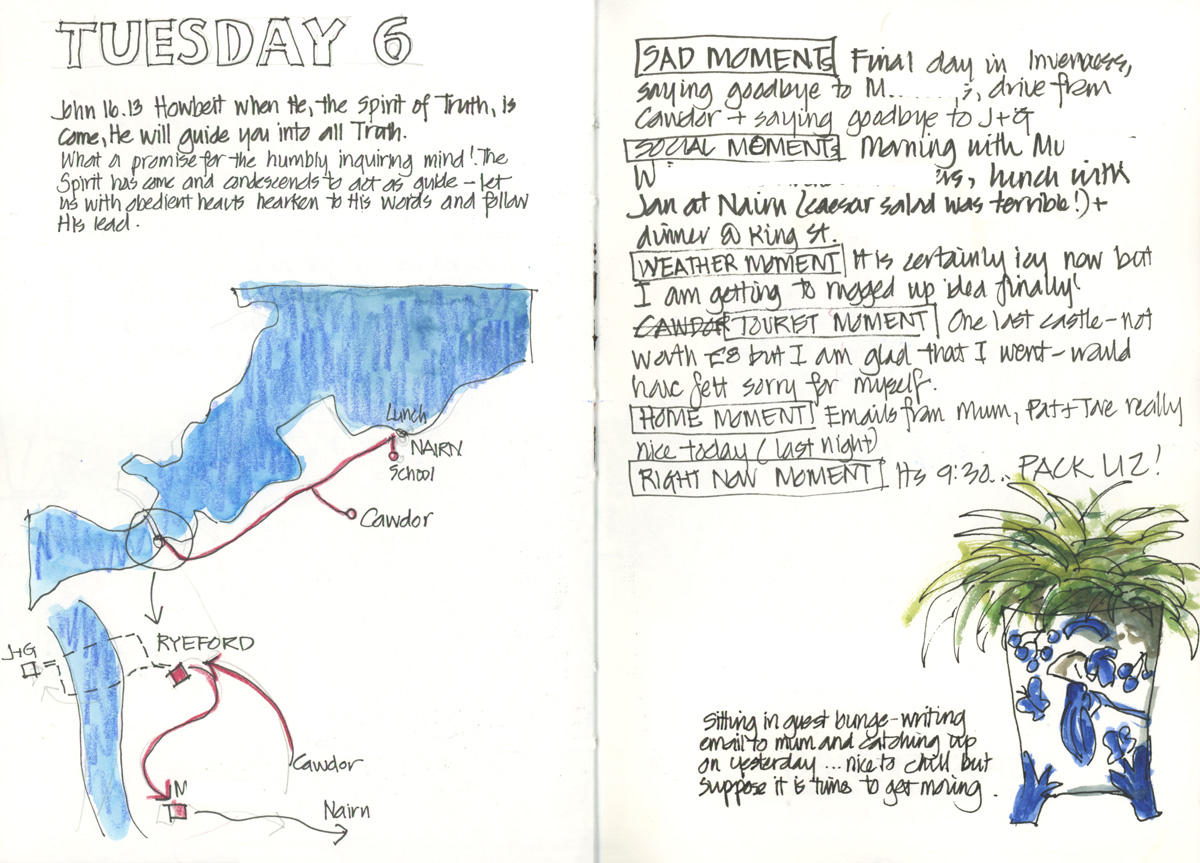 TUESDAY 6
John 16.13 Howbeit when He, the Spirit of Truth, is
come, He will guide you into all Truth.
What a promise for the humbly inquiring mind! The
Spirit has come and condescends to act as guide - let
us with obedient hearts hearken to His words and follow
His lead.
Lunch
NAIRN
School
Cawdor
J+G
RYEFORD
Cawdor
M
Nairn
SAD MOMENTS Final day in Inverness,
saying goodbye to M........s, drive from
Cawdor + saying goodbye to J+G
SOCIAL MOMENTS Morning with
W
lunch with
Jan at Nairn (caesar salad was terrible!) +
dinner @ King St.
WEATHER MOMENT It is certainly icy now but
I am getting to rugged up idea finally!
CAWDOR TOURIST MOMENT One last castle - not
worth £8 but I am glad that I went - would
have felt sorry for myself.
HOME MOMENT Emails from Mum, Pat + really
nice today (last night)
RIGHT NOW MOMENT Its 9:30... PACK UZ!
Sitting in guest - writing
email to mum and catching up
on yesterday ... nice to chill but
suppose it is time to get moving.